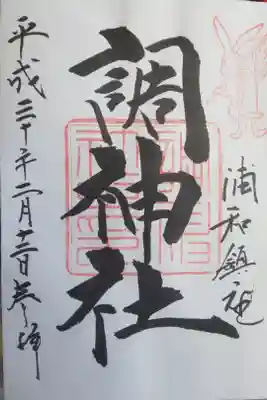 浦和鎮座
調神社
平成三十年二月十三日参拝